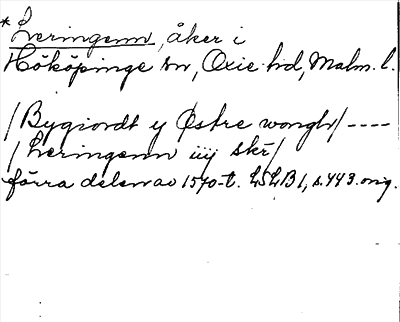 *Leeringenn, åker i
Hököpinge sn, Oxie hd, Malm. l.
/Bygiordt y Østre wongh/ ----
/Leeringenn iiij skr/
förra delen av 1570-t. LSLB 1, s. 443. orig.